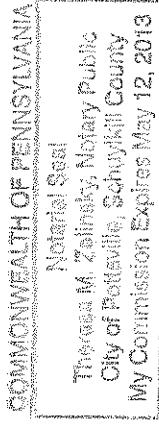 COMMONWEALTH OF PENNSYLVANIA
Notarial Seal
Theresa M. Notary Public
City of Pottsville, Schuylkill County
My Commission Expires May 12, 2013